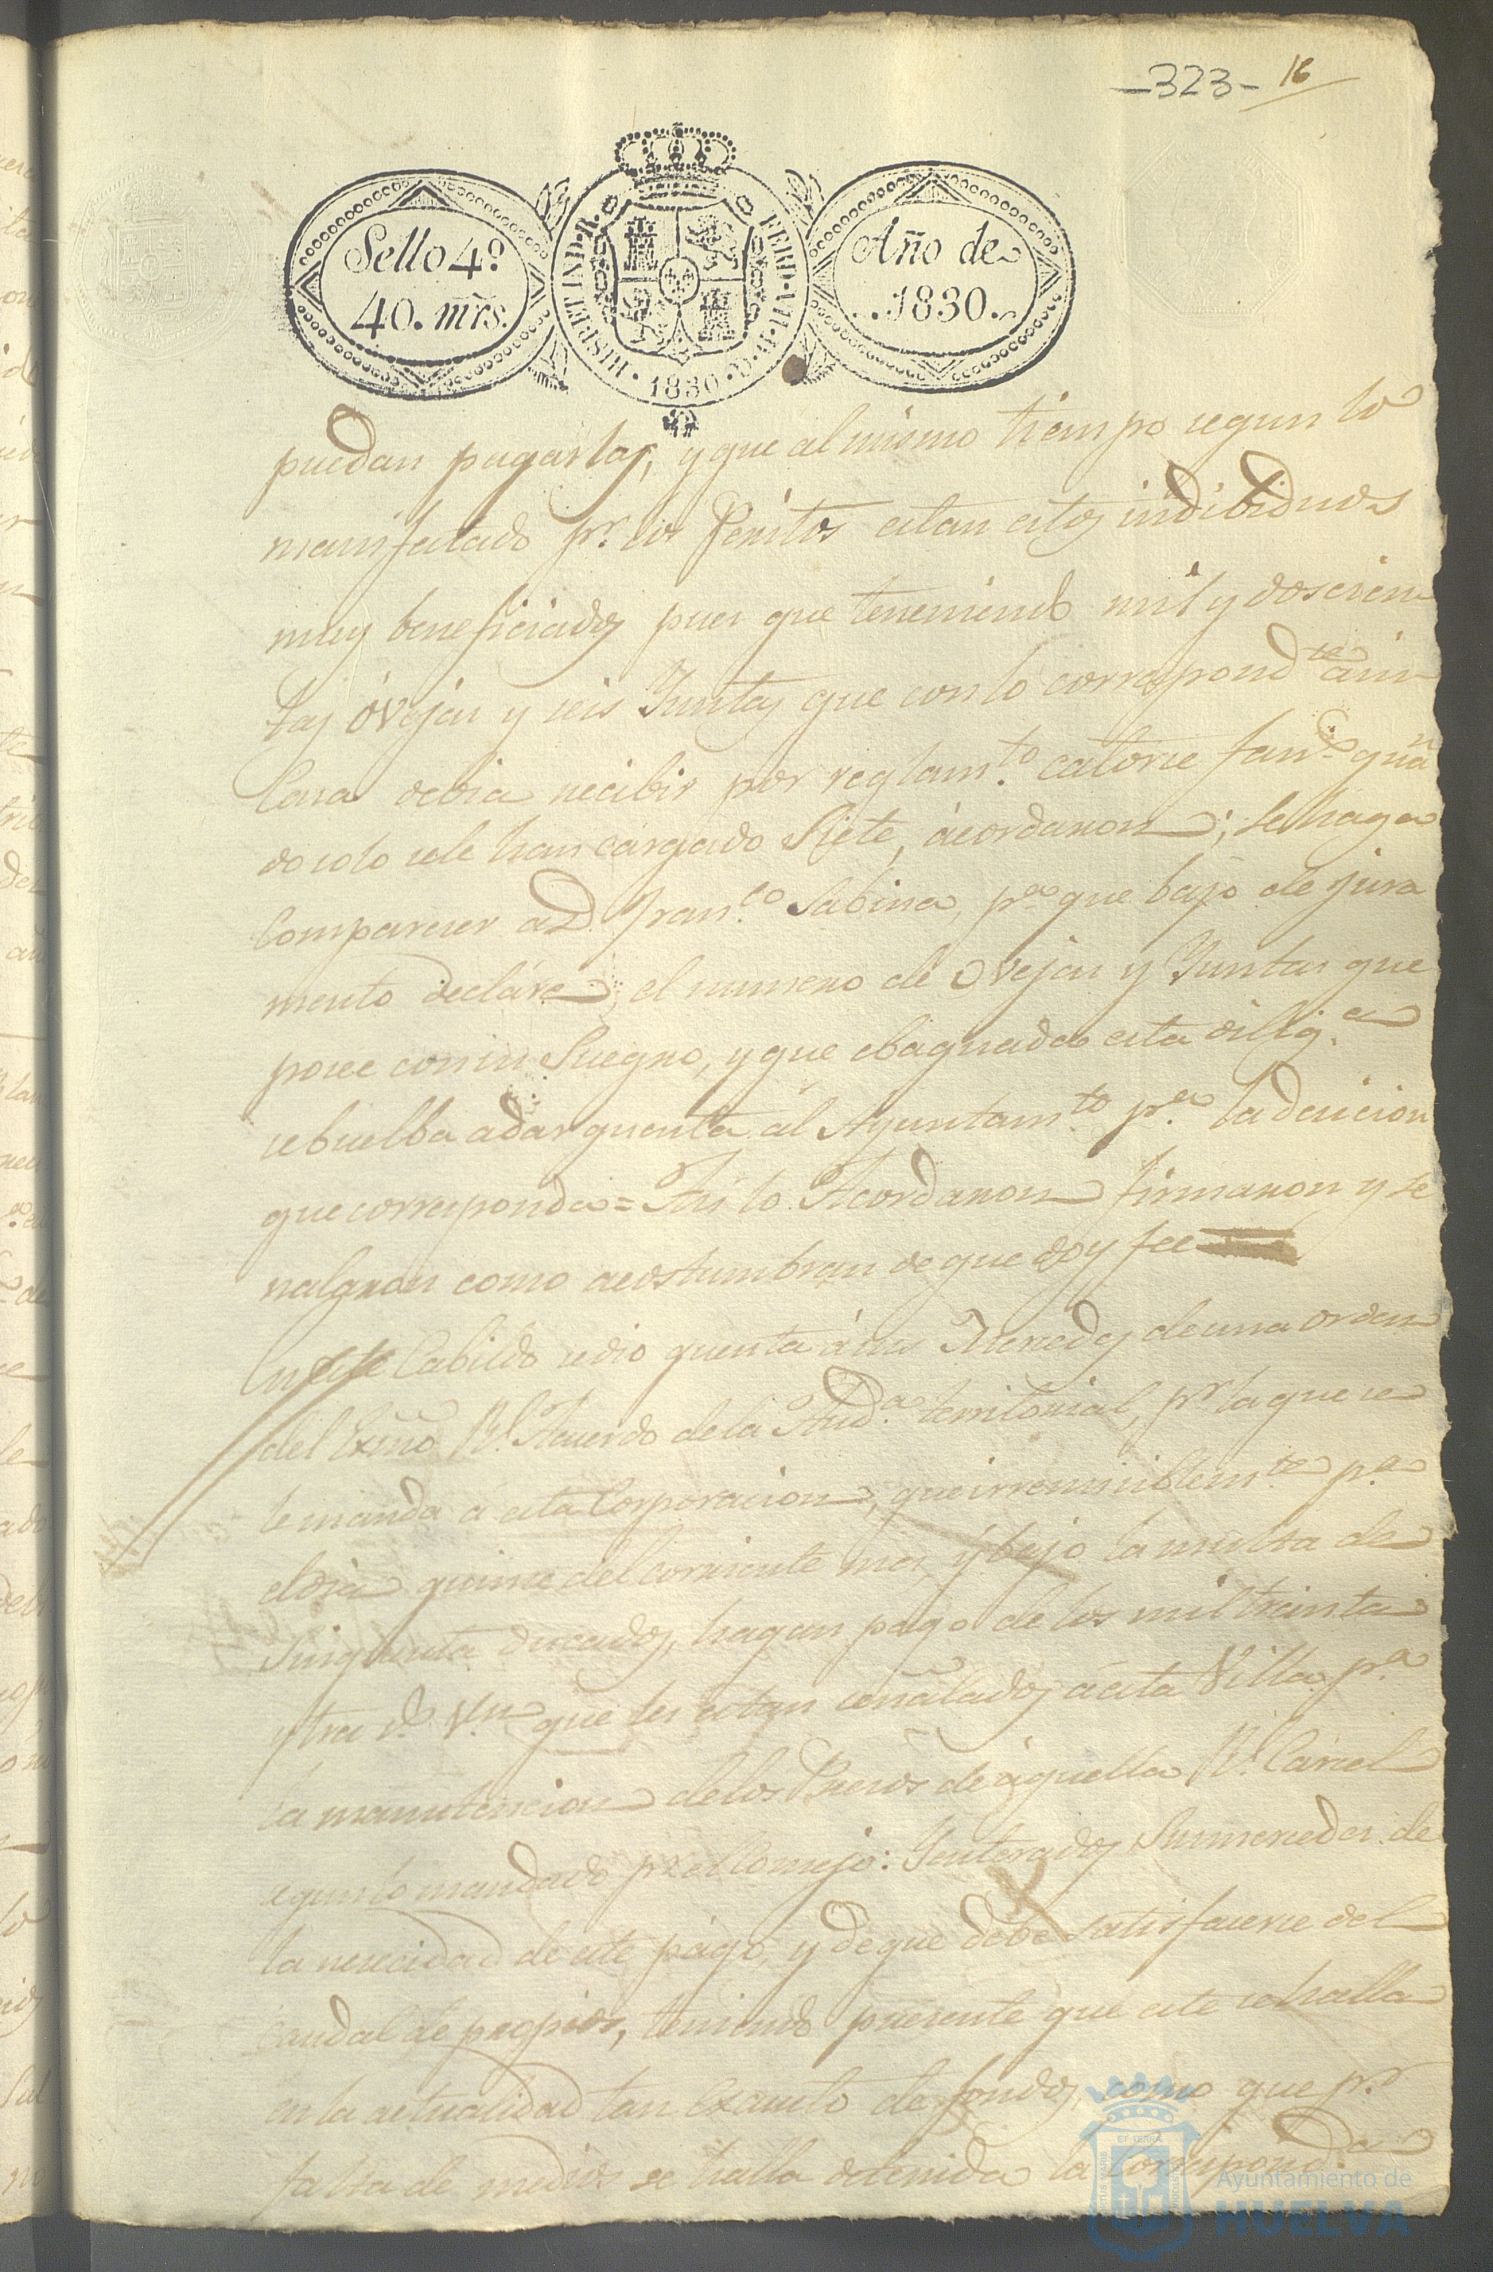 -323- 16
Sello 4º
40. mrs.
HISP. ET IND. R. FERD. VII. D. G. 1830
Año de
1830.
puedan pagarlas, y que al mismo tiempo segun lo
manifestado pr. los Peritos estan estos indibiduos
muy beneficiados pues que teneniendo mil y doscien
tas óvejas y seis Yuntas que con lo correspondte. a su
Casa debia recibir por reglamto. catorce fans. quan
do solo se le han cargado Siete, ácordaron; se haga
comparecer a D. Franco. Sabina, pa. que bajo de jura
mento decláre el numero de Ovejas y Yuntas que
posee con su Suegro, y que ebaquada esta diliga.
se buelba a dar quenta al Ayuntamto. pa. la decicion
que corresponda = Asi lo Acordaron firmaron y se
ñalaron como acostumbran de que doy fee
n este Cabildo se dio quenta á sus Mercedes de una orden
del Exmo. Rl. Acuerdo de la Auda. territorial, pr. la que se
le manda a esta Corporacion, que irremisiblemte. pa.
el dia quince del corriente mes y bajo la multa de
Sinquenta ducados, hagan pago de los mil treinta
y tres rs. vn. que les estan señalados á esta Villa pa.
la manutencion de los Presos de aquella Rl. Carcel
segun lo mandado pr. el Consejo: Y enterados Sus mercedes de
la nececidad de este pago, y de que debe satisfacerse del
caudal de propios, teniendo presente que este se halla
en la actualidad tan Exausto de fondos, como que pr.
falta de medios se halla detenida la Corresponda.
Ayuntamiento de
HUELVA